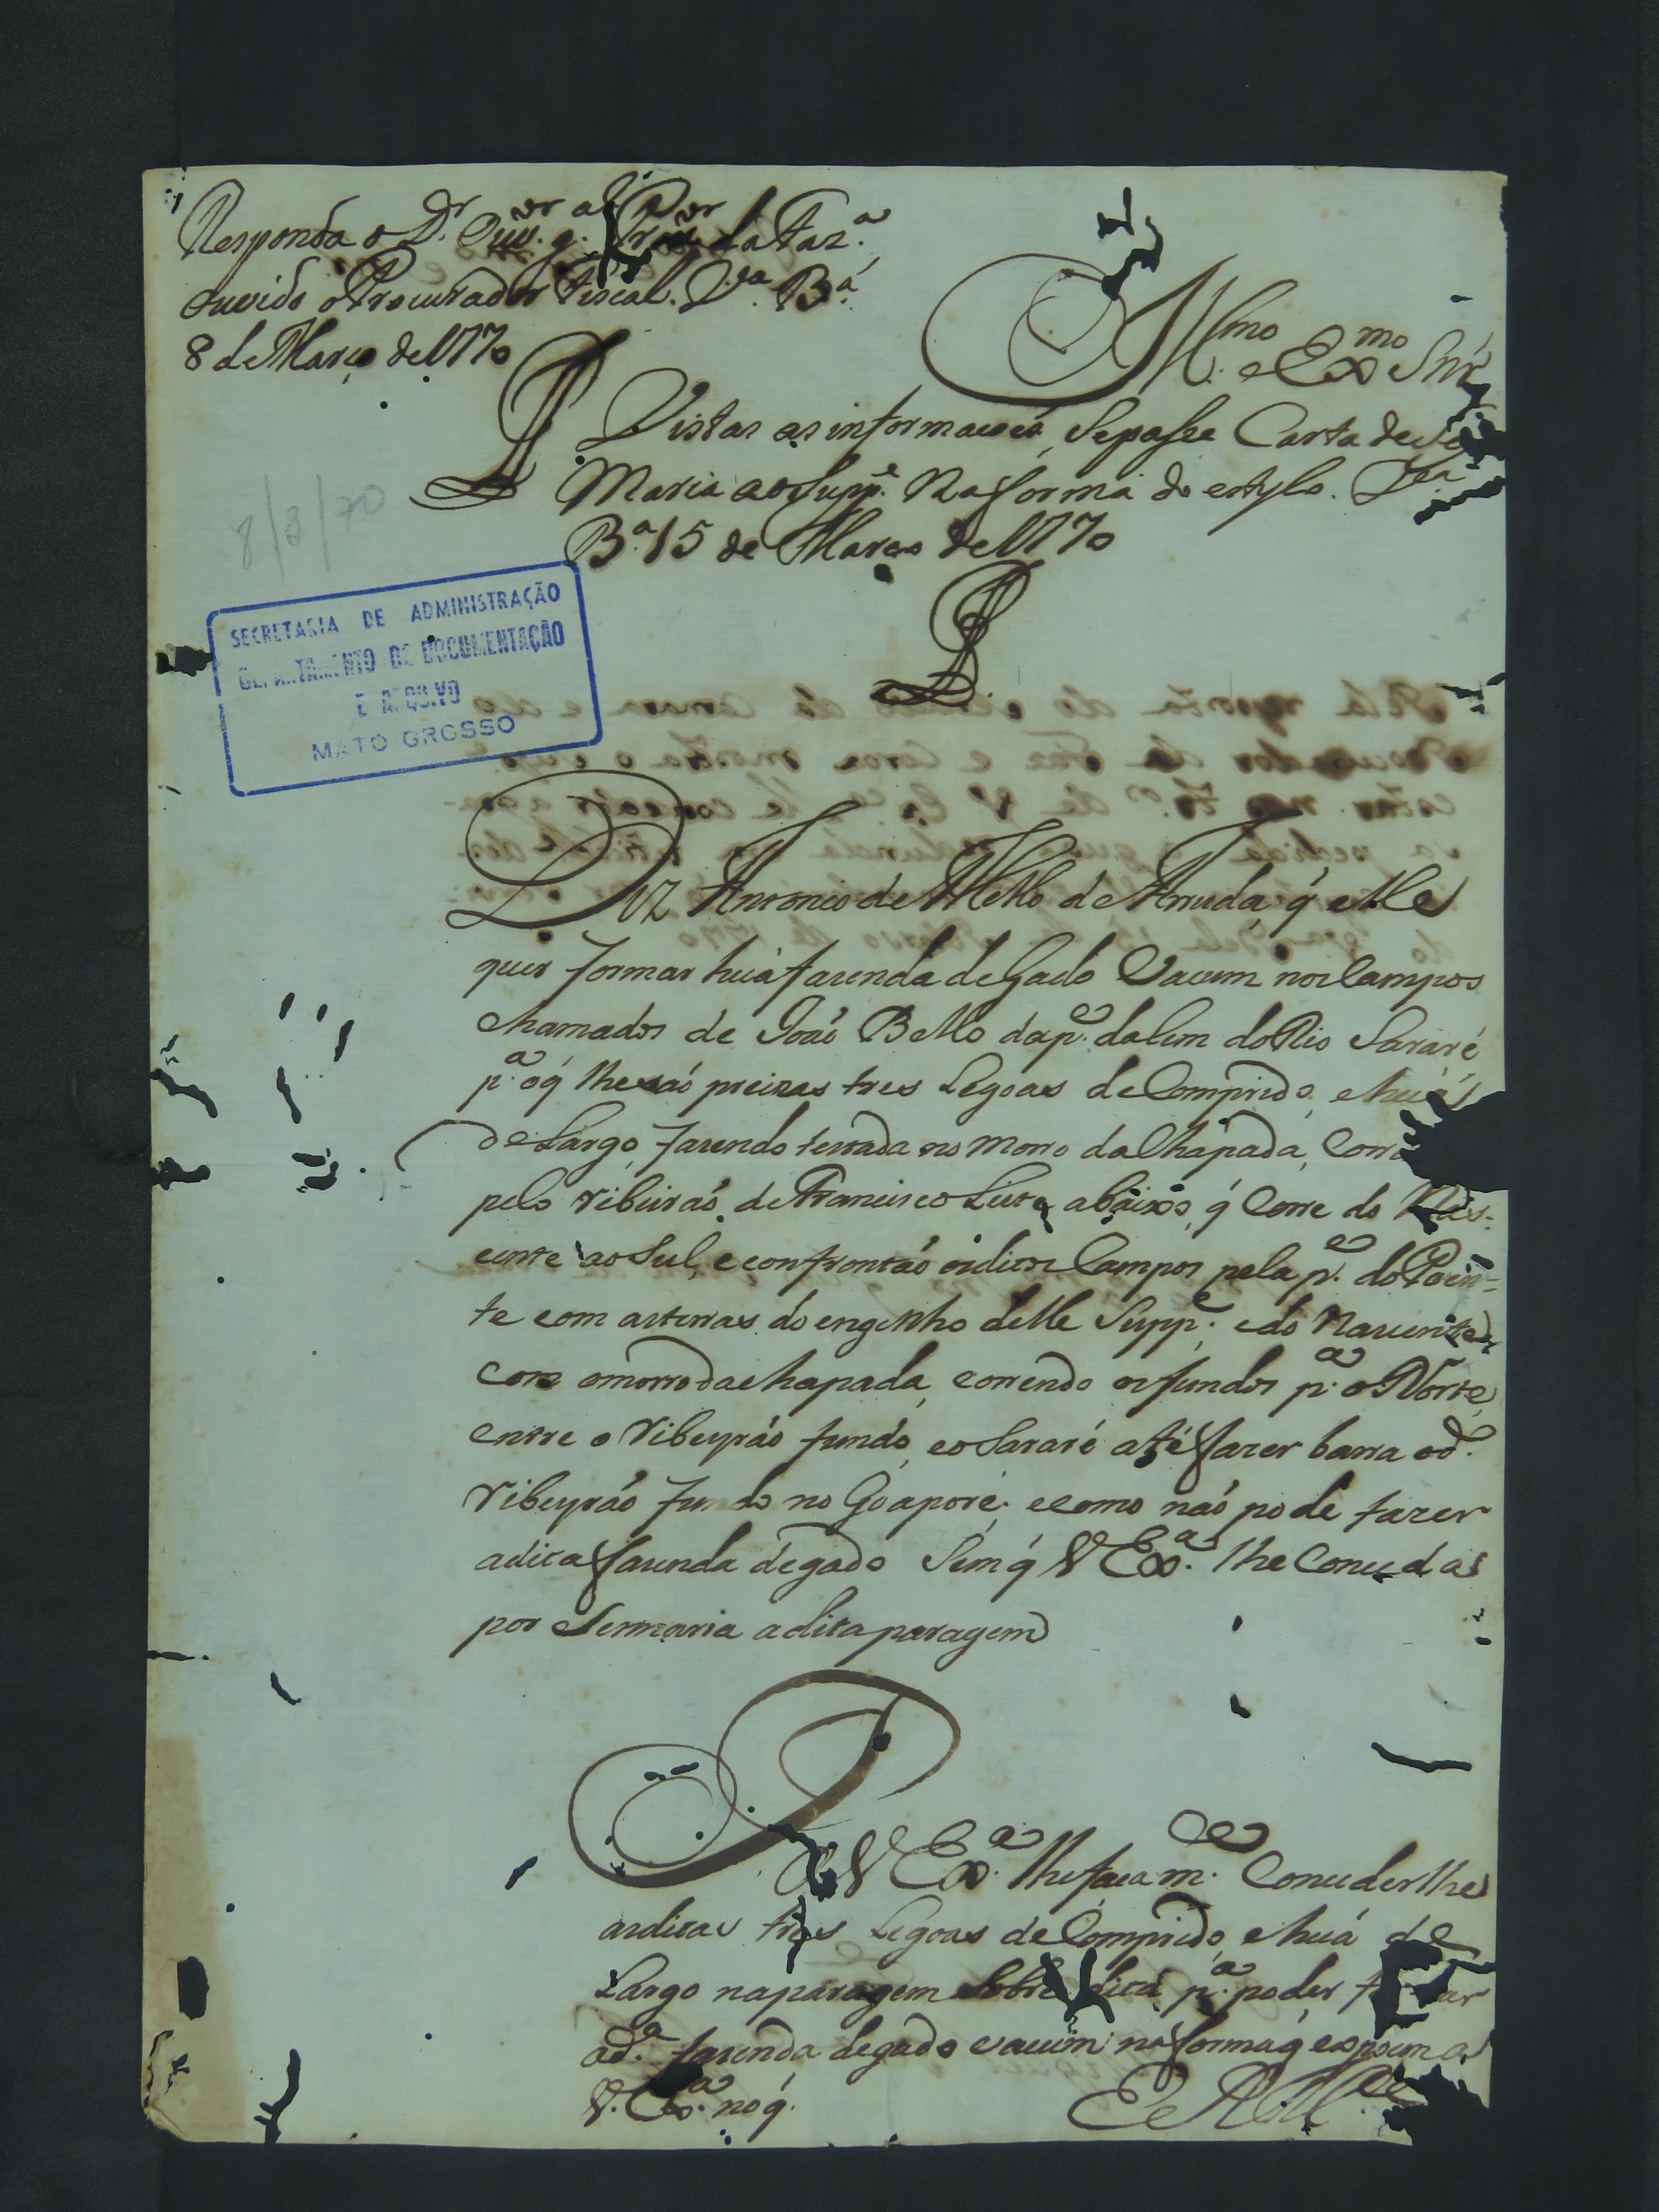 Responda o D.r Ouv.or g.al Prov.or da Faz.a
ouvido o Procurador Fiscal. V.a B.a
8 de Março de 1770
Ill.mo e Ex.mo Snr
Vistas as informacoés, Sepasse Carta de Se
Maria ao Supp.e Na forma do estylo. V.a
B.a 15 de Março de 1770
8/3/70
SECRETARIA DE ADMINISTRAÇÃO
DEPARTAMENTO DE DOCUMENTAÇÃO
E ARQUIVO
MATO GROSSO
Diz Antonio de Mello de Arruda, q́ elle
quer formar huá fazenda de Gado Vacum nos Campos
chamados de Joaó Bello da p.e dalem do Rio Sararé
p.a oq́ lhe saó precizas tres Legoas de Comprido, e huá
de Largo, fazendo testada no Morro da Chapada, Corr
pelo ribeiraó de Francisco abaixo, q́ Corre do Nas-
cente ao Sul, e confrontaó os ditos Campos pela p.e do Poen-
te com as terras do engenho delle Supp.e e do Nascente
com o morro da chapada, correndo os fundos p.a o Norte
entre o Ribeyraó fundo, eo Sararé até fazer barra o d.o
Ribeyraó fundo no Goaporé; e como naó pode fazer
a dita fazenda de gado Sem q́ V Ex.a lhe Conceda
por Sesmaria a dita paragem
P
A V Ex.a lhe faca m.ce Conceder lhe
as ditas tres Legoas de Comprido, e huá de
Largo na paragem Sobre dita p.a poder
a d.a fazenda de gado vacum na forma q́ expoem a
V. Ex.a no q́.
E R M.ce